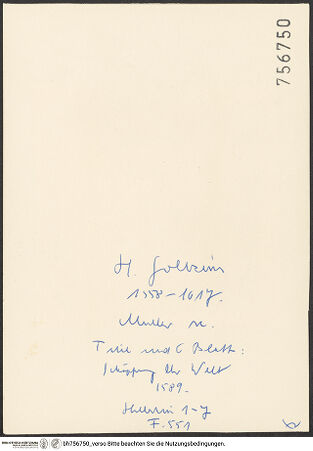 756750
H. Goltzius
1558-1617.
Muller sc.
Titel und 6 Blatt:
Schöpfung der Welt
1589.
Hollstein 1-7
F. 551
bh756750_verso Bitte beachten Sie die Nutzungsbedingungen.